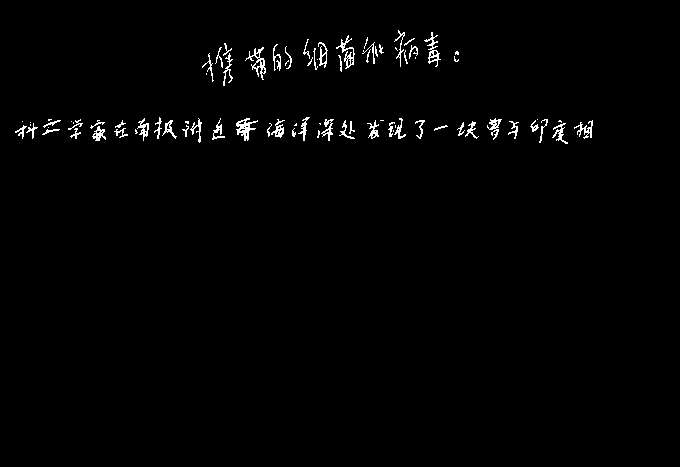 携带的细菌和病毒。
科学家在南极附近海洋深处发现了一块与印度相